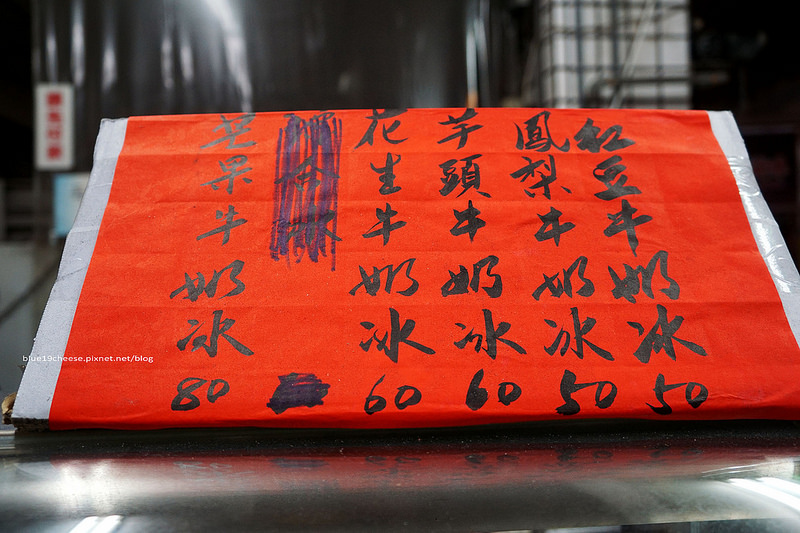 紅豆牛奶冰 50
鳳梨牛奶冰 50
芋頭牛奶冰 60
花生牛奶冰 60
芒果牛奶冰 80
blue19cheese.pixnet.net/blog